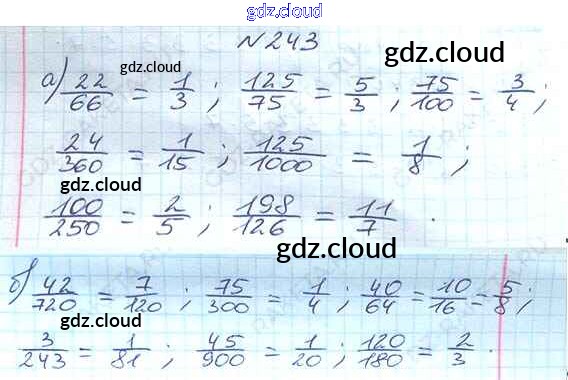 gdz.cloud
gdz.cloud
№243
gdz.cloud
gdz.cloud
а) 22/66 = 1/3 ; 125/75 = 5/3 ; 75/100 = 3/4 ;
24/360 = 1/15 ; 125/1000 = 1/8 ;
gdz.cloud
100/250 = 2/5 ; 198/126 = 11/7 .
gdz.cloud
б) 42/720 = 7/120 ; 75/300 = 1/4 ; 40/64 = 10/16 = 5/8 ;
gdz.cloud
3/243 = 1/81 ; 45/900 = 1/20 ; 120/180 = 2/3 .